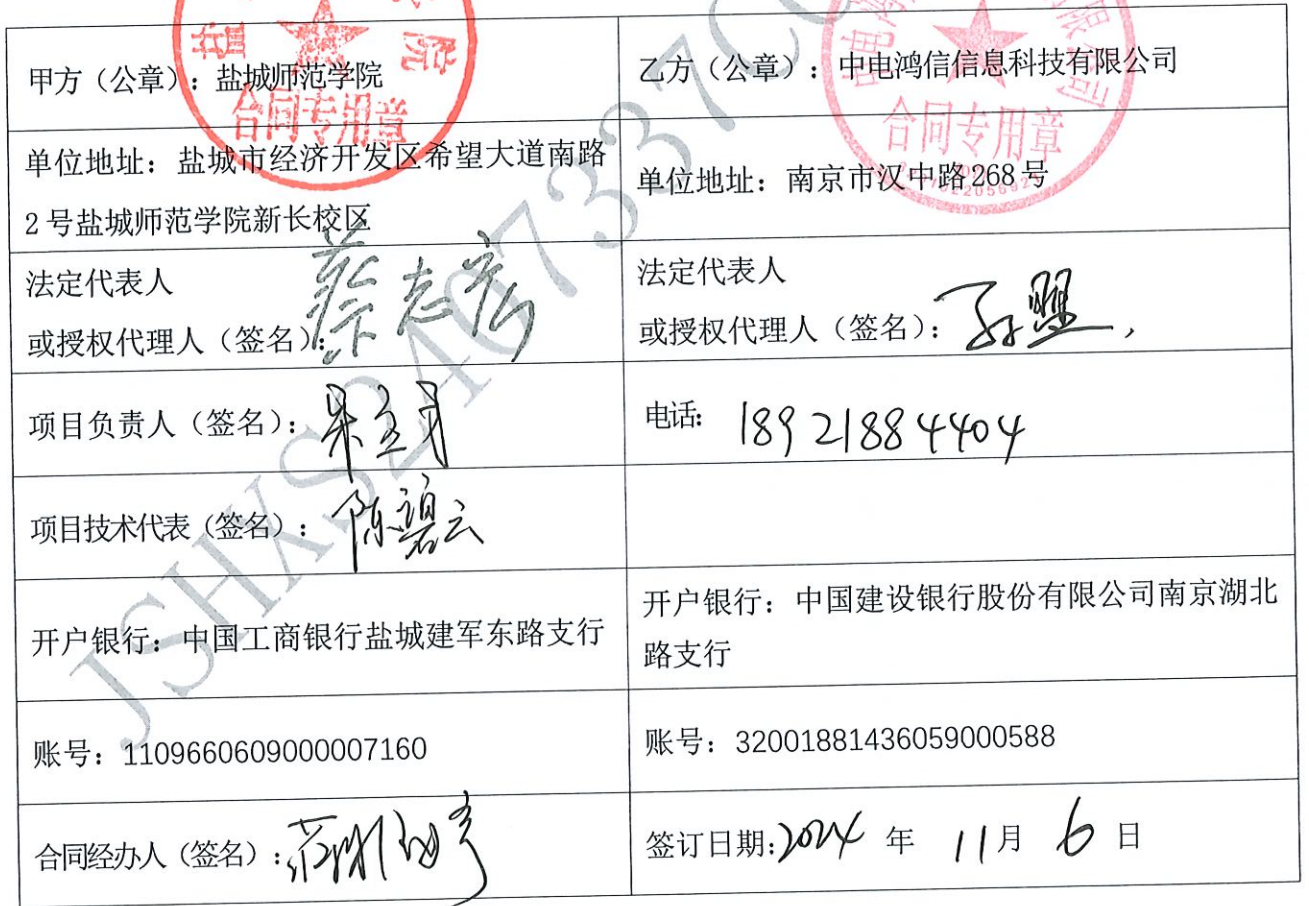 甲方（公章）：盐城师范学院
合同专用章
乙方（公章）：中电鸿信信息科技有限公司
合同专用章
单位地址：盐城市经济开发区希望大道南路
2号盐城师范学院新长校区
单位地址：南京市汉中路268号
法定代表人
或授权代理人（签名）：蔡志宏
法定代表人
或授权代理人（签名）：孙盟
项目负责人（签名）：
电话：18921884404
项目技术代表（签名）：陈碧云
开户银行：中国工商银行盐城建军东路支行
开户银行：中国建设银行股份有限公司南京湖北
路支行
账号：1109660609000007160
账号：32001881436059000588
合同经办人（签名）：
签订日期：2024 年 11月 6 日